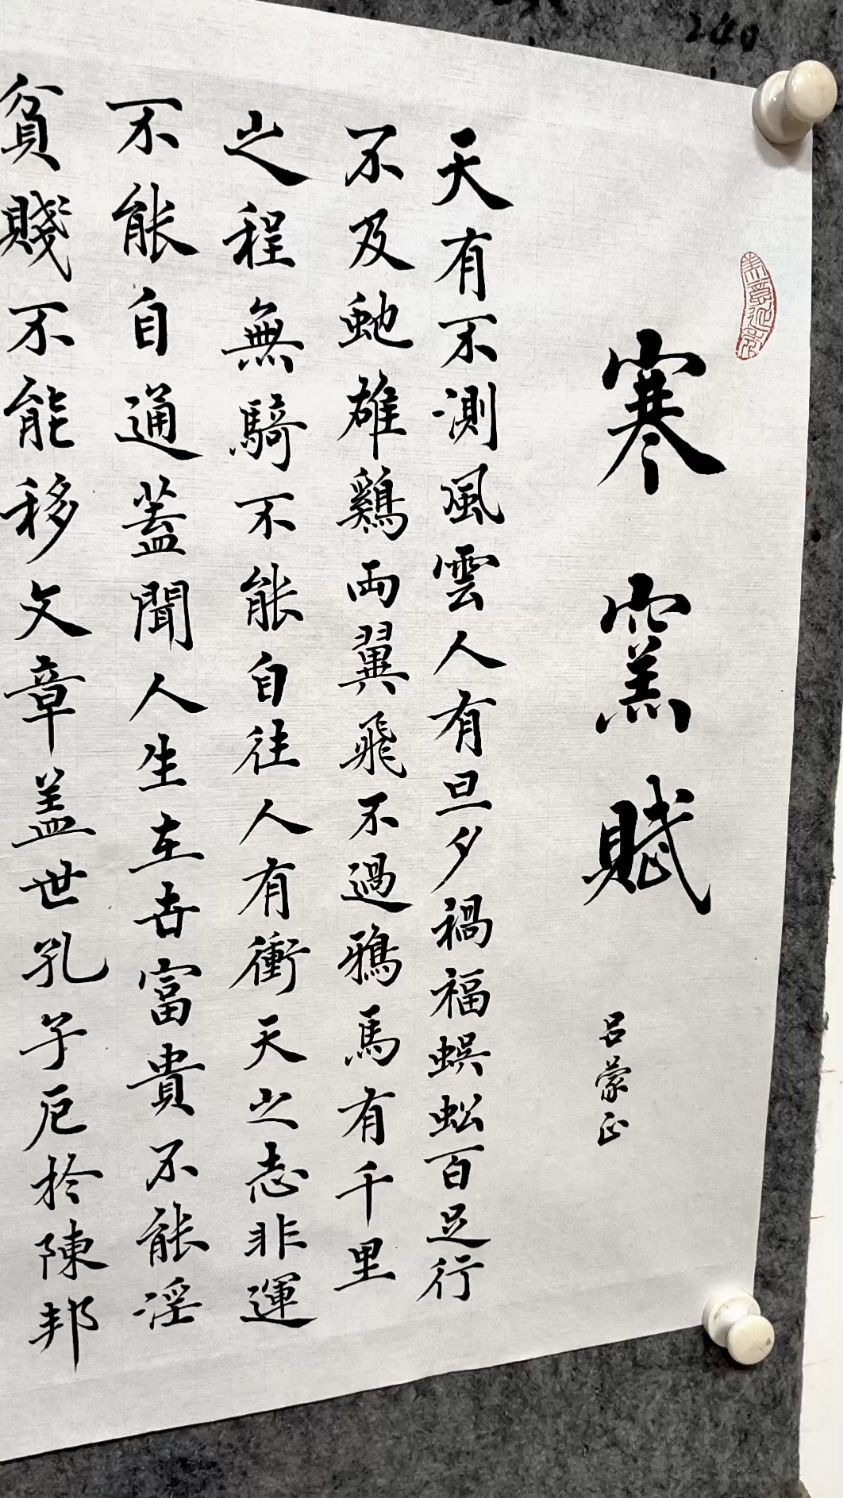 240
寒窯賦
呂蒙正
天有不測風雲人有旦夕禍福蜈蚣百足行
不及虵雄鷄両翼飛不過鴉馬有千里
之程無騎不能自往人有衝天之志非運
不能自通蓋聞人生在世富貴不能淫
貧賤不能移文章盖世孔子厄於陳邦